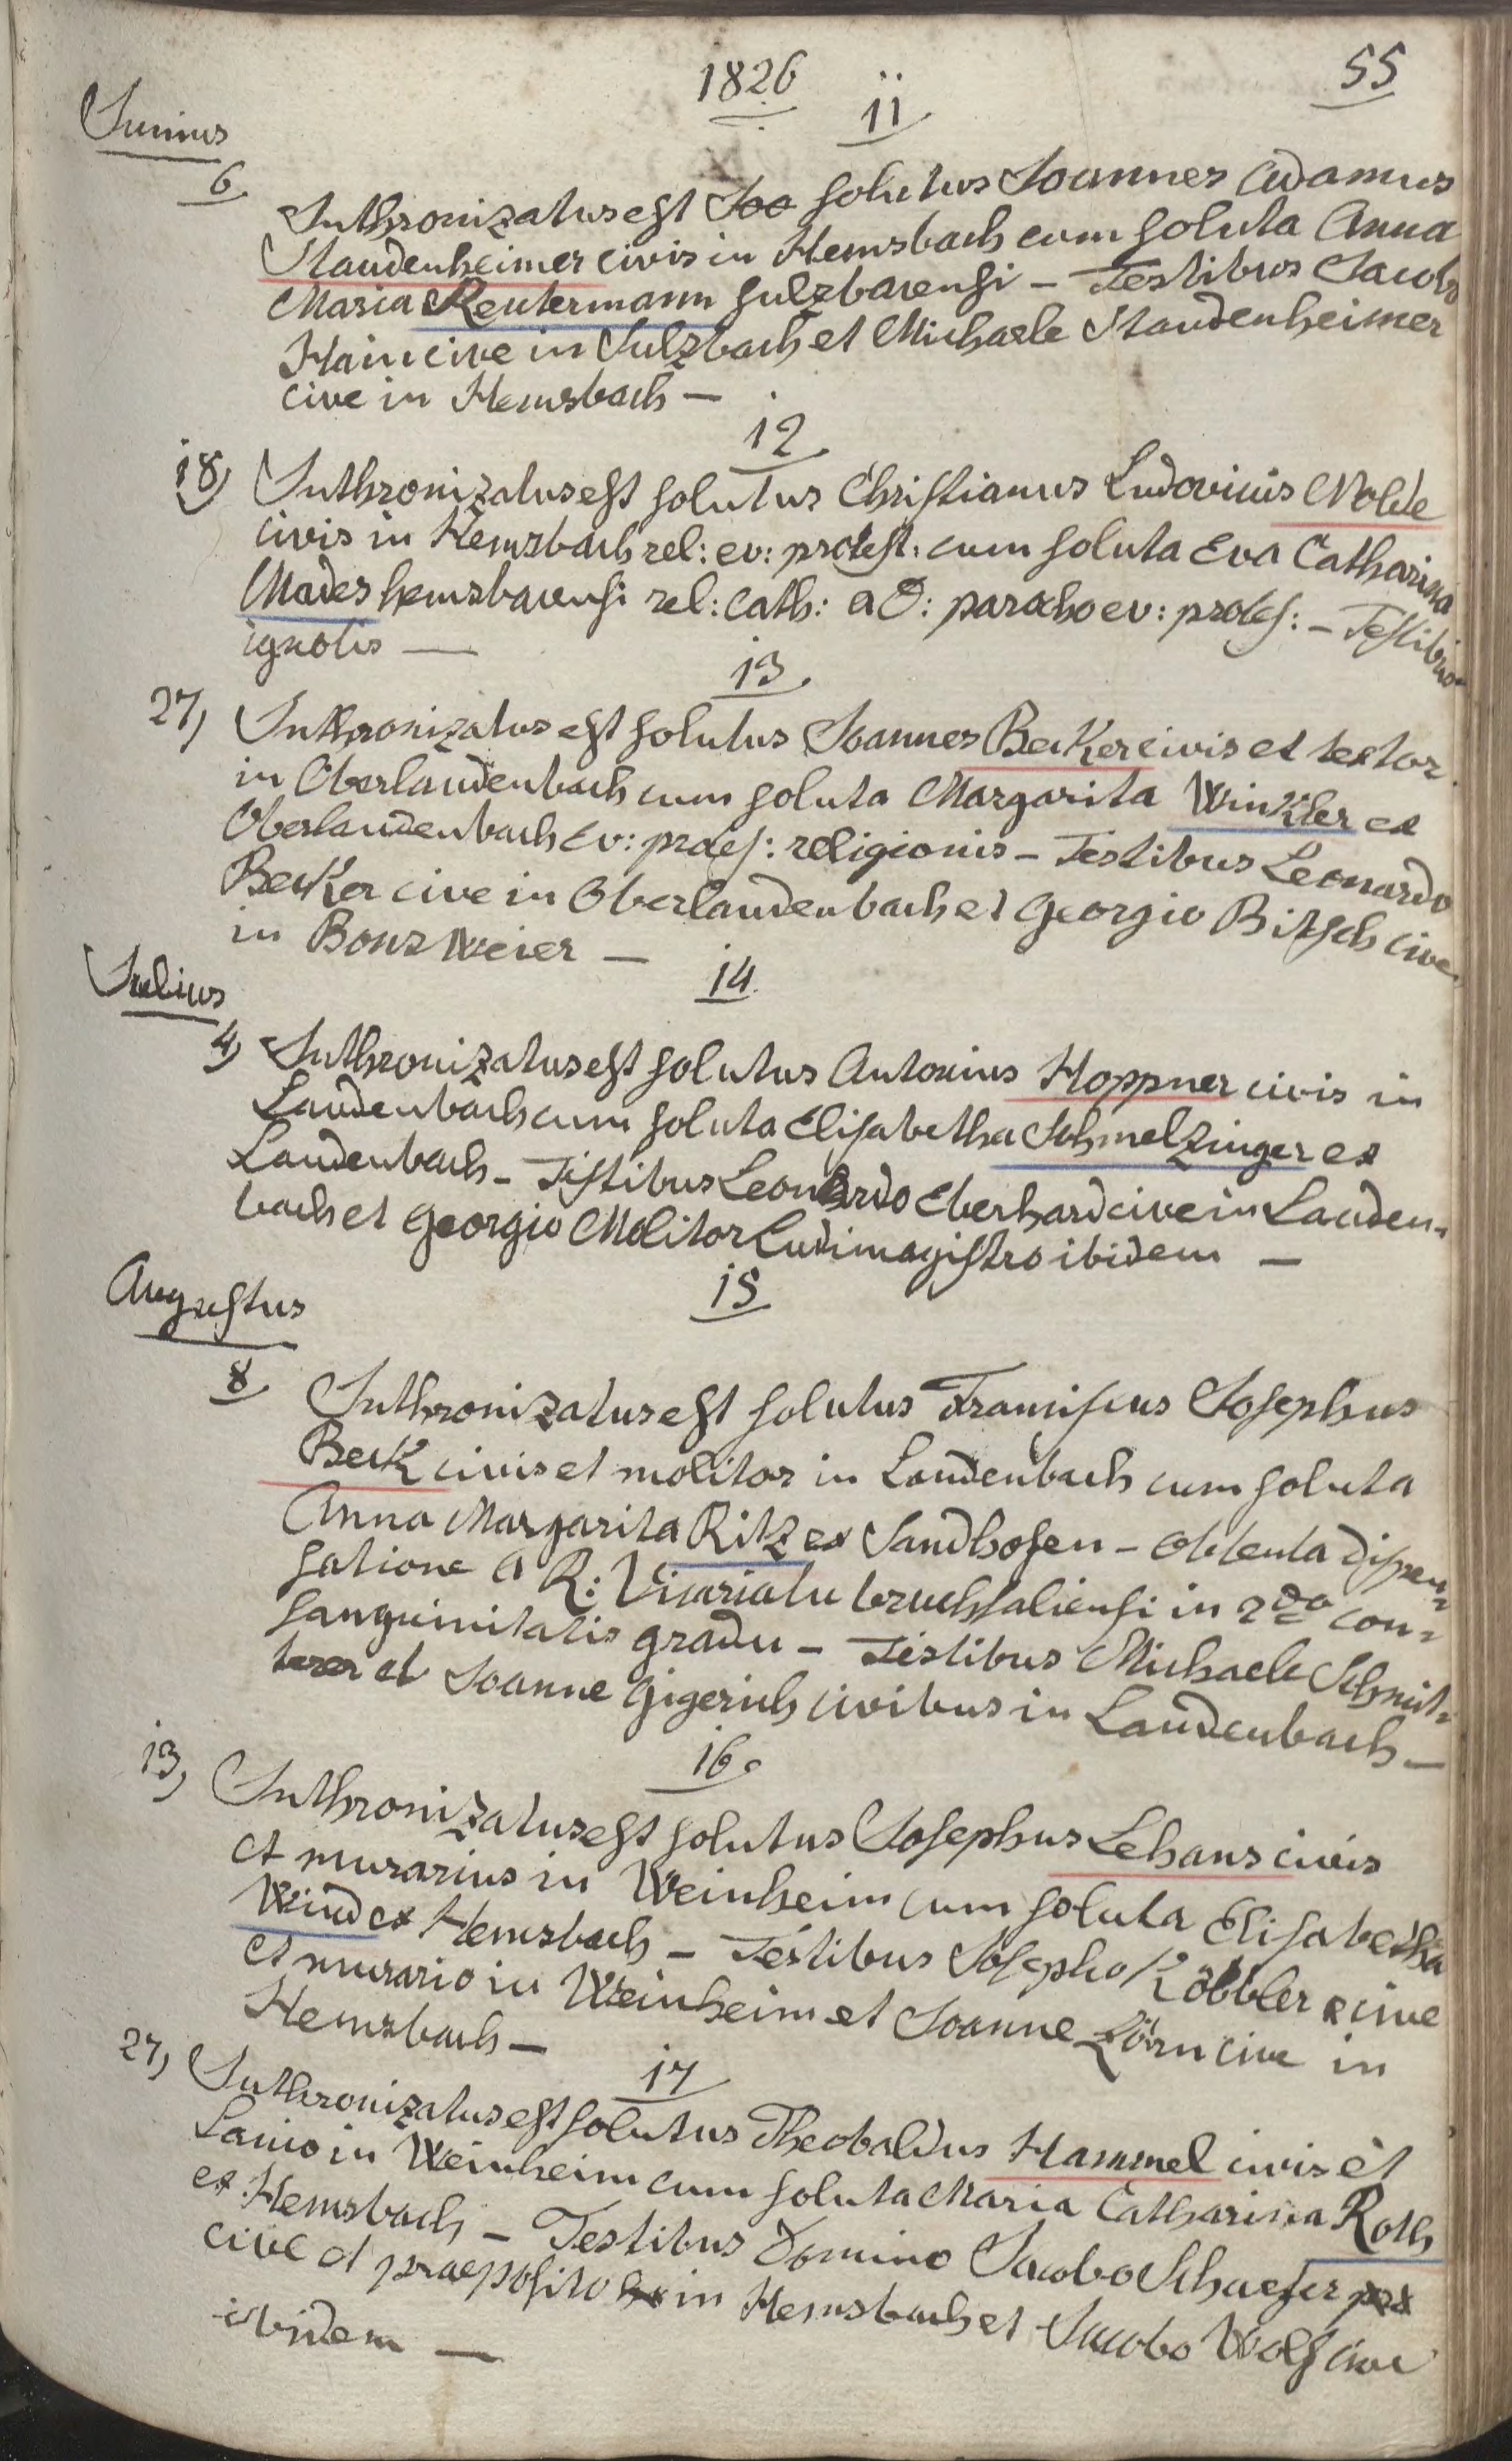 1826
55
11
Junius
6.
Inthronizatus est Joa solutus Joannes Adamus
Staudenheimer civis in Hemsbach cum soluta Anna
Maria Reutermann sulzbacensi - Testibus Jacobo
Hain cive in Sulzbach et Michaele Staudenheimer
cive in Hemsbach -
12
18) Inthronizatus est solutus Christianus Ludovicus Nolde
civis in Hemsbach rel: ev: protest: cum soluta Eva Catharina
Mades hemsbacensi rel: cath: a D: parocho ev: protes: - Testibus
ignotis -
13.
27) Inthronizatus est solutus Joannes Becker civis et textor
in Oberlaudenbach cum soluta Margarita Winkler ex
Oberlaudenbach Ev: protes: religionis - Testibus Leonardo
Becker cive in Oberlaudenbach et Georgio Bitsch cive
in Bonzweier -
14.
Julius
4) Inthronizatus est solutus Antonius Hoppner civis in
Laudenbach cum soluta Elisabetha Schmelzinger ex
Laudenbach - Testibus Leonhardo Eberhard cive in Lauden-
bach et Georgio Molitor Ludimagistro ibidem -
15
Augustus
8 Inthronizatus est solutus Franciscus Josephus
Beck civis et molitor in Laudenbach cum soluta
Anna Margarita Ritz ex Sandhofen - obtenta dispen-
satione a R: Vicariatu bruchsaliensi in 2do con-
sanguinitatis gradu - Testibus Michaele Schmit-
et Joanne Gigerich civibus in Laudenbach -
16.
13) Inthronizatus est solutus Josephus Lehans civis
et murarius in Weinheim cum soluta Elisabetha
Wind ex Hemsbach - Testibus Josepho Köbbler cive
et murario in Weinheim et Joanne Zörn cive in
Hemsbach -
17
27) Inthronizatus est solutus Theobaldus Hammel civis et
Lanio in Weinheim cum soluta Maria Catharina Roth
ex Hemsbach - Testibus Domino Jacobo Schaefer
cive et praeposito in Hemsbach et Jacobo Wolf cive
ibidem -